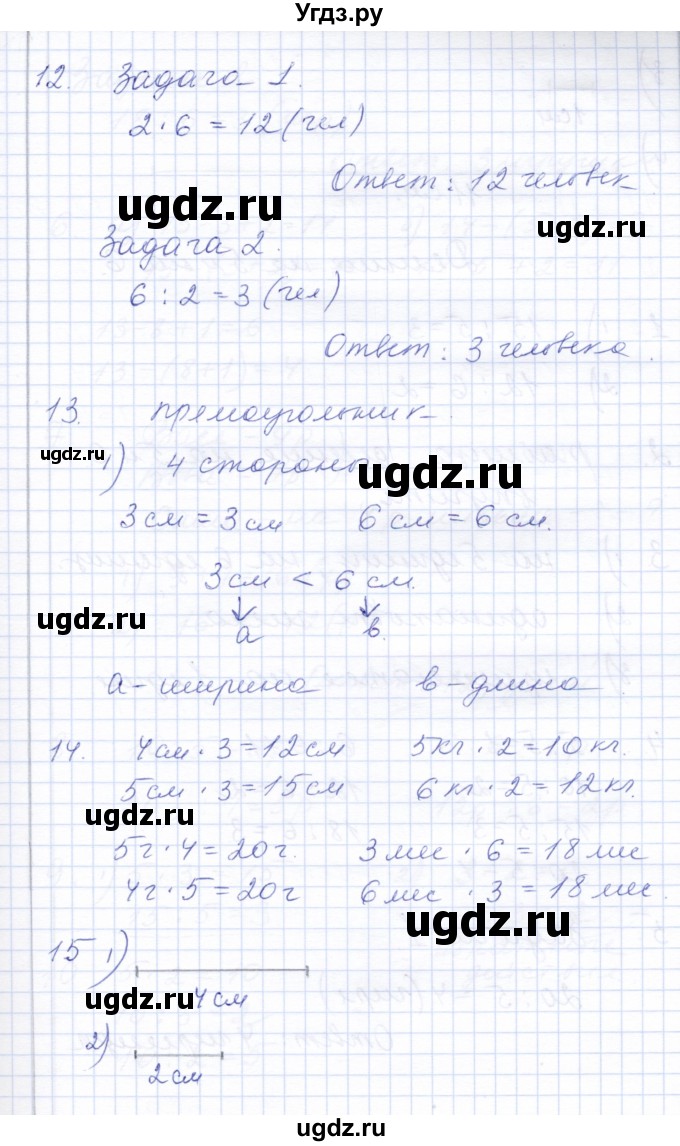 Угдз.ру
12. Задача 1.
2 · 6 = 12 (чел)
Ответ: 12 человек
ugdz.ru
ugdz.ru
Задача 2.
6 : 2 = 3 (чел)
ugdz.ru
Ответ: 3 человека.
13. прямоугольник.
ugdz.ru
1) 4 стороны
ugdz.ru
3 см = 3 см 6 см = 6 см.
3 см < 6 см.
ugdz.ru
а в.
а - ширина в - длина
14. 4 см · 3 = 12 см 5 кг · 2 = 10 кг.
5 см · 3 = 15 см 6 кг · 2 = 12 кг.
ugdz.ru
5 г · 4 = 20 г. 3 мес · 6 = 18 мес
4 г · 5 = 20 г 6 мес · 3 = 18 мес.
ugdz.ru
15 1)
ugdz.ru
4 см
2)
2 см
ugdz.ru
ugdz.ru